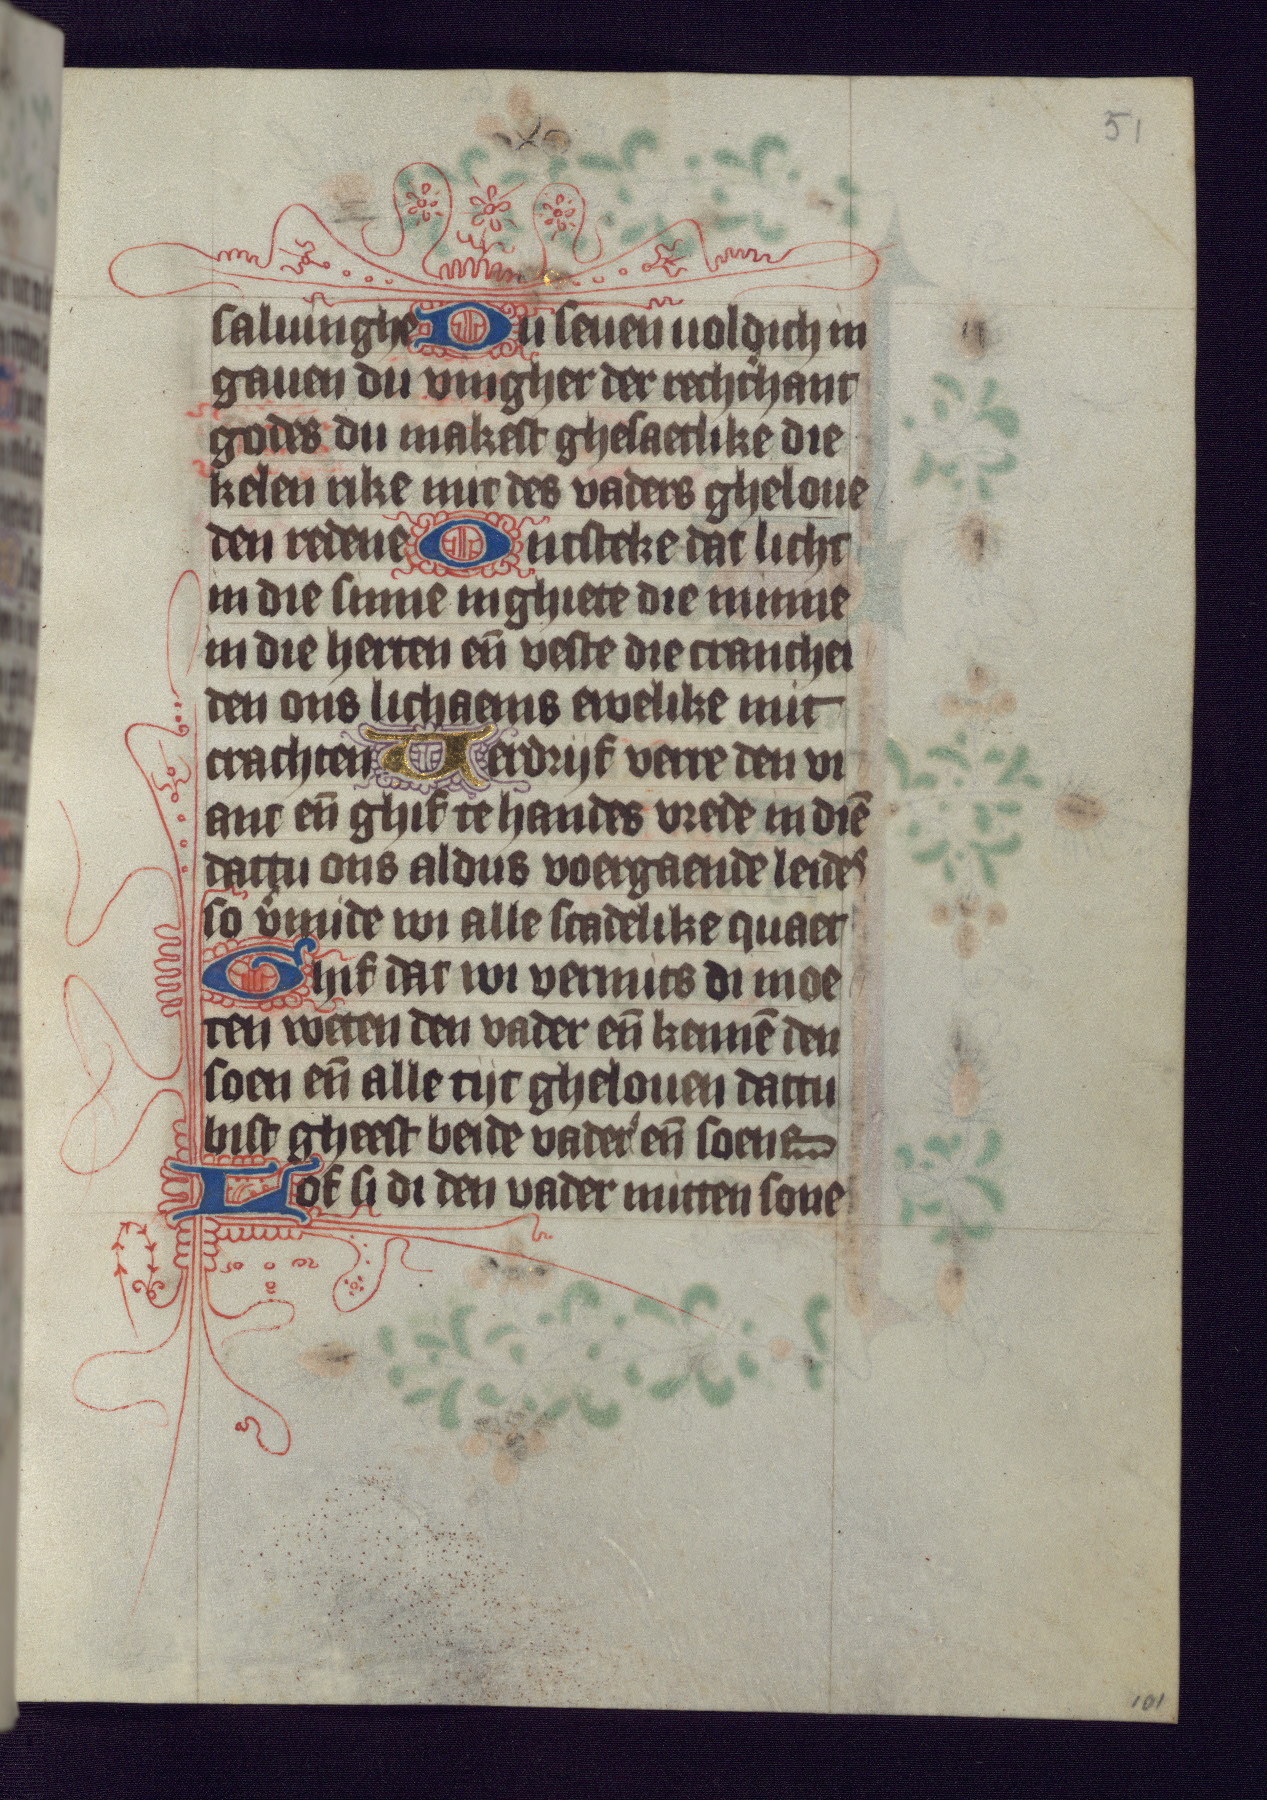 51
saluinghe Du seuen uoldich in
gauen du vingher der rechᷓhant
godes du makest ghesaetlike die
kelen rike mit des vaders gheloue
den redene Ontsteke dat licht
in die sinne inghiete die minne
in die herten eñ veste die cranchei
den ons lichaems ewelike mit
crachten Verdrijf verre den vi
ant eñ ghif te handes vrede in diē
dattu ons aldus voergaende leides
so v̓mide wi alle scadelike quaet
Ghif dat wi vermits di moe
ten weten den vader eñ kennē den
soen eñ alle tijt ghelouen dattu
bist gheest beide vader eñ soens
Lof si di den vader mitten sone
101